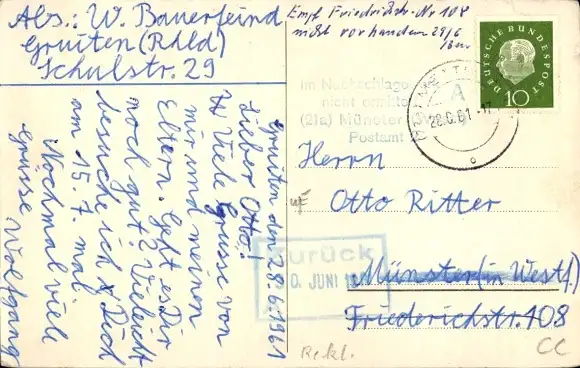 Abs.: W. Bauerfeind
Gruiten (Rhld)
Schulstr. 29
Empf. Friedrichstr. Nr 108
nicht vorhanden 29/6
DEUTSCHE BUNDESPOST
10
Im Nachschlage
nicht ermittelt
(21a) Münster
Postamt
A
28.6.61.-17
Gruiten den 28.6.1961
Lieber Otto!
Viele Grüsse von
mir und meinen
Eltern. Geht es Dir
noch gut? Vieleicht
besuche ich Dich
am 15.7. mal.
Nochmal viele
Grüsse Wolfgang
Herrn
Otto Ritter
Münster (in Westf.)
Friederichstr. 108
Zurück
0. JUNI 19
Rekl.
CC